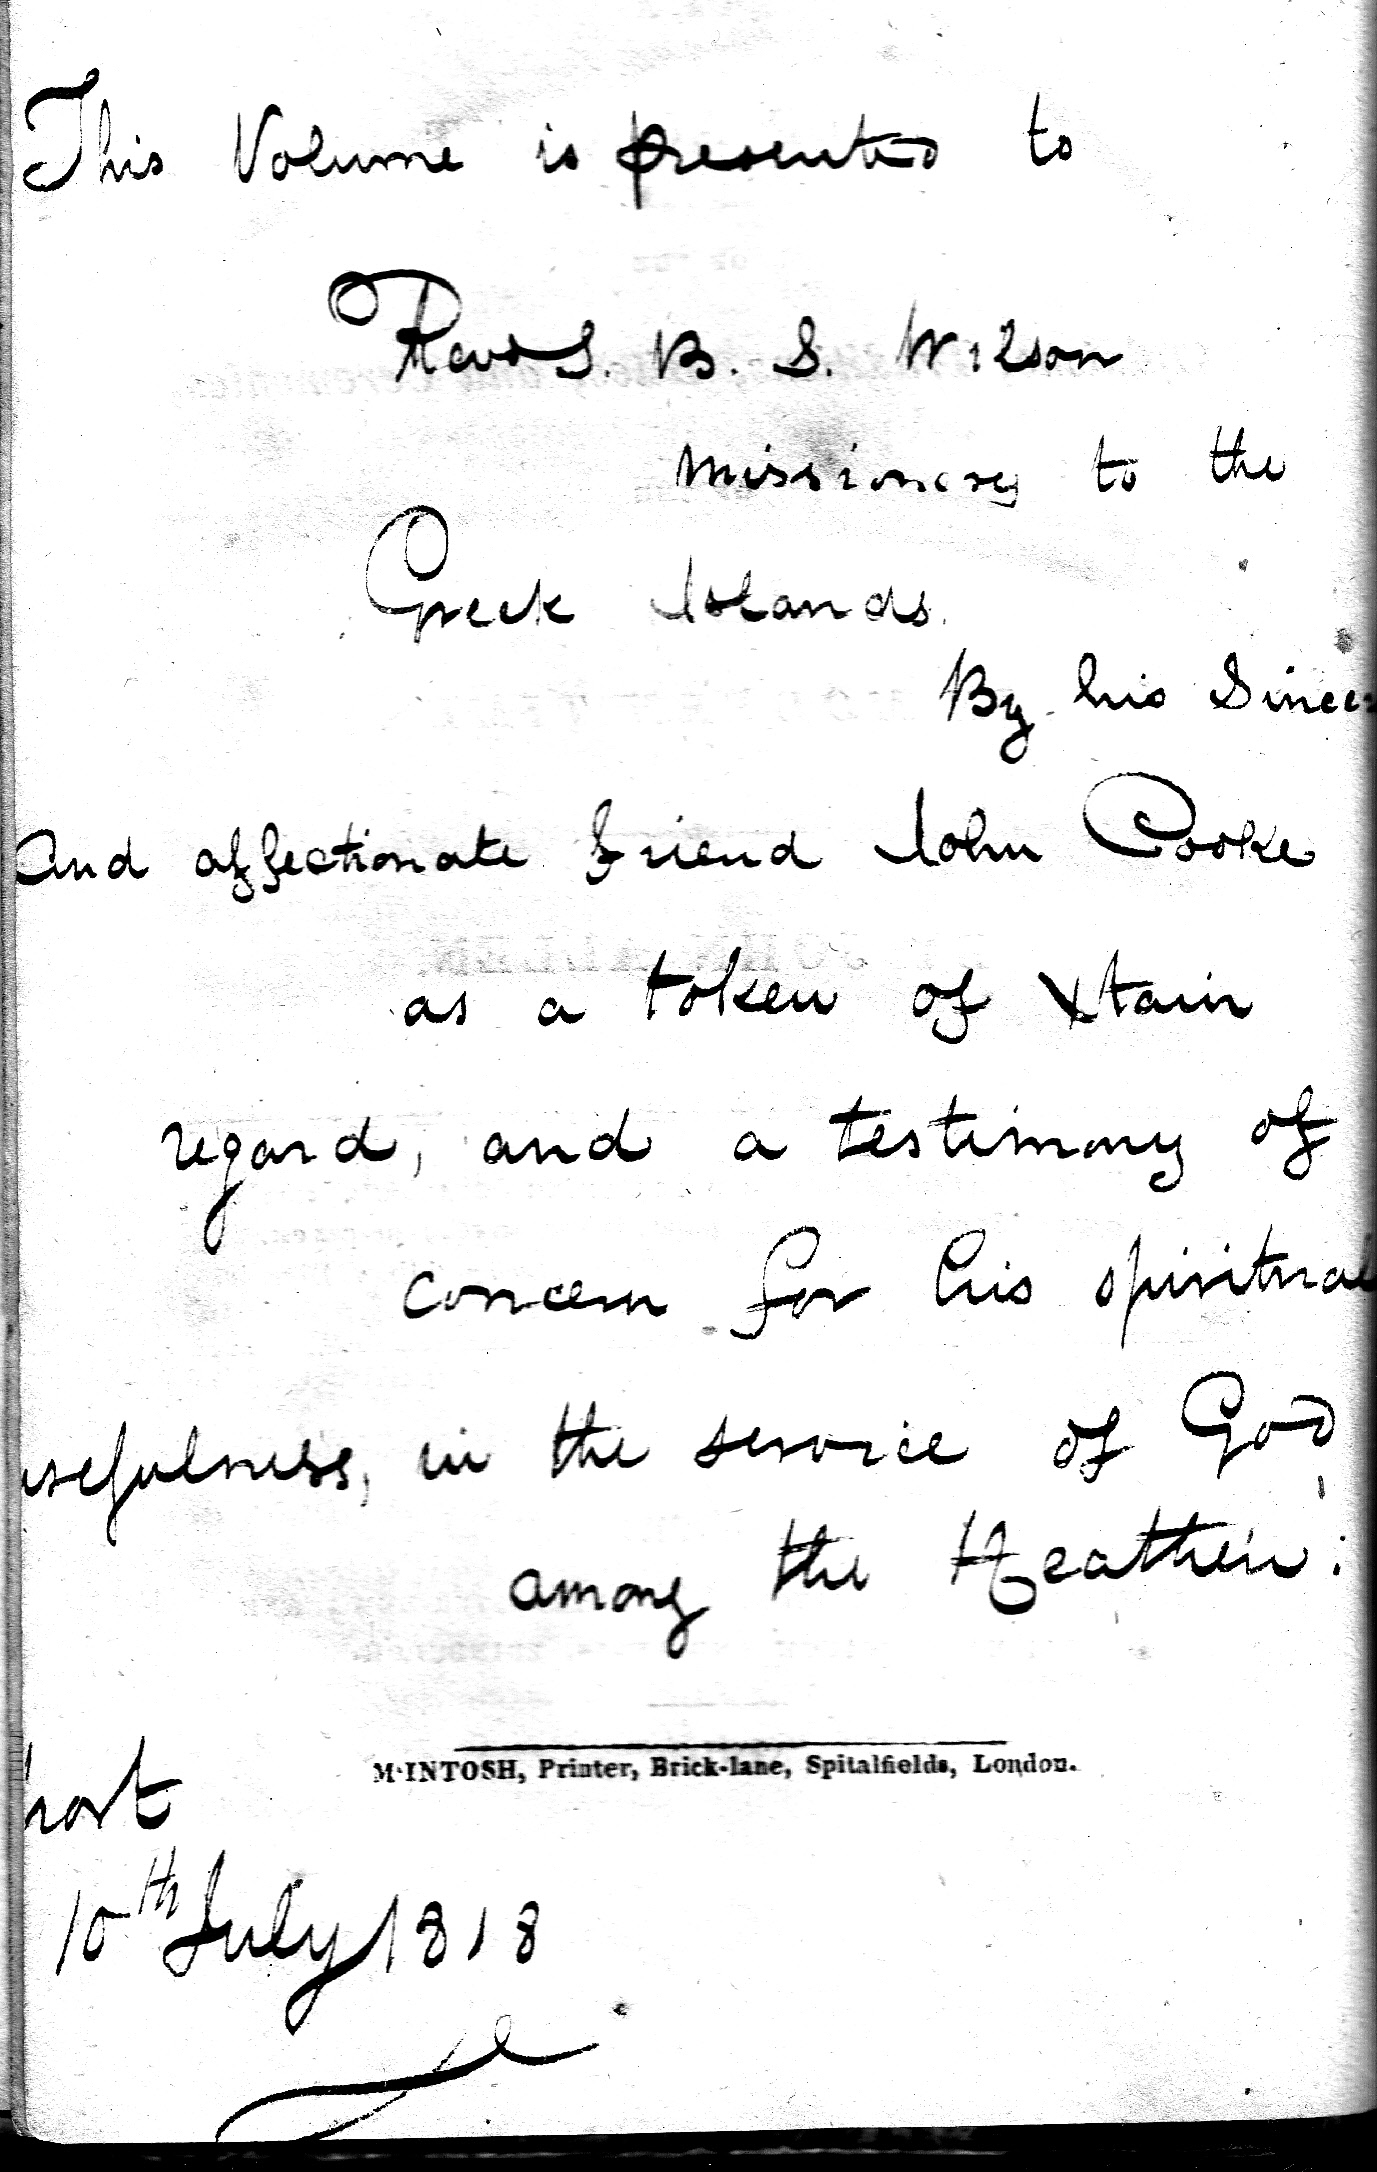 This Volume is presented to
Revd S. B. S. Wilson
Missionary to the
Greek Islands.
By his Sincer
And affectionate friend John Cooke
as a token of Xtain
regard, and a testimony of
concern for his spiritual
usefulness, in the service of God
among the Heathen:
M'INTOSH, Printer, Brick-lane, Spitalfields, London.
10th July 1818